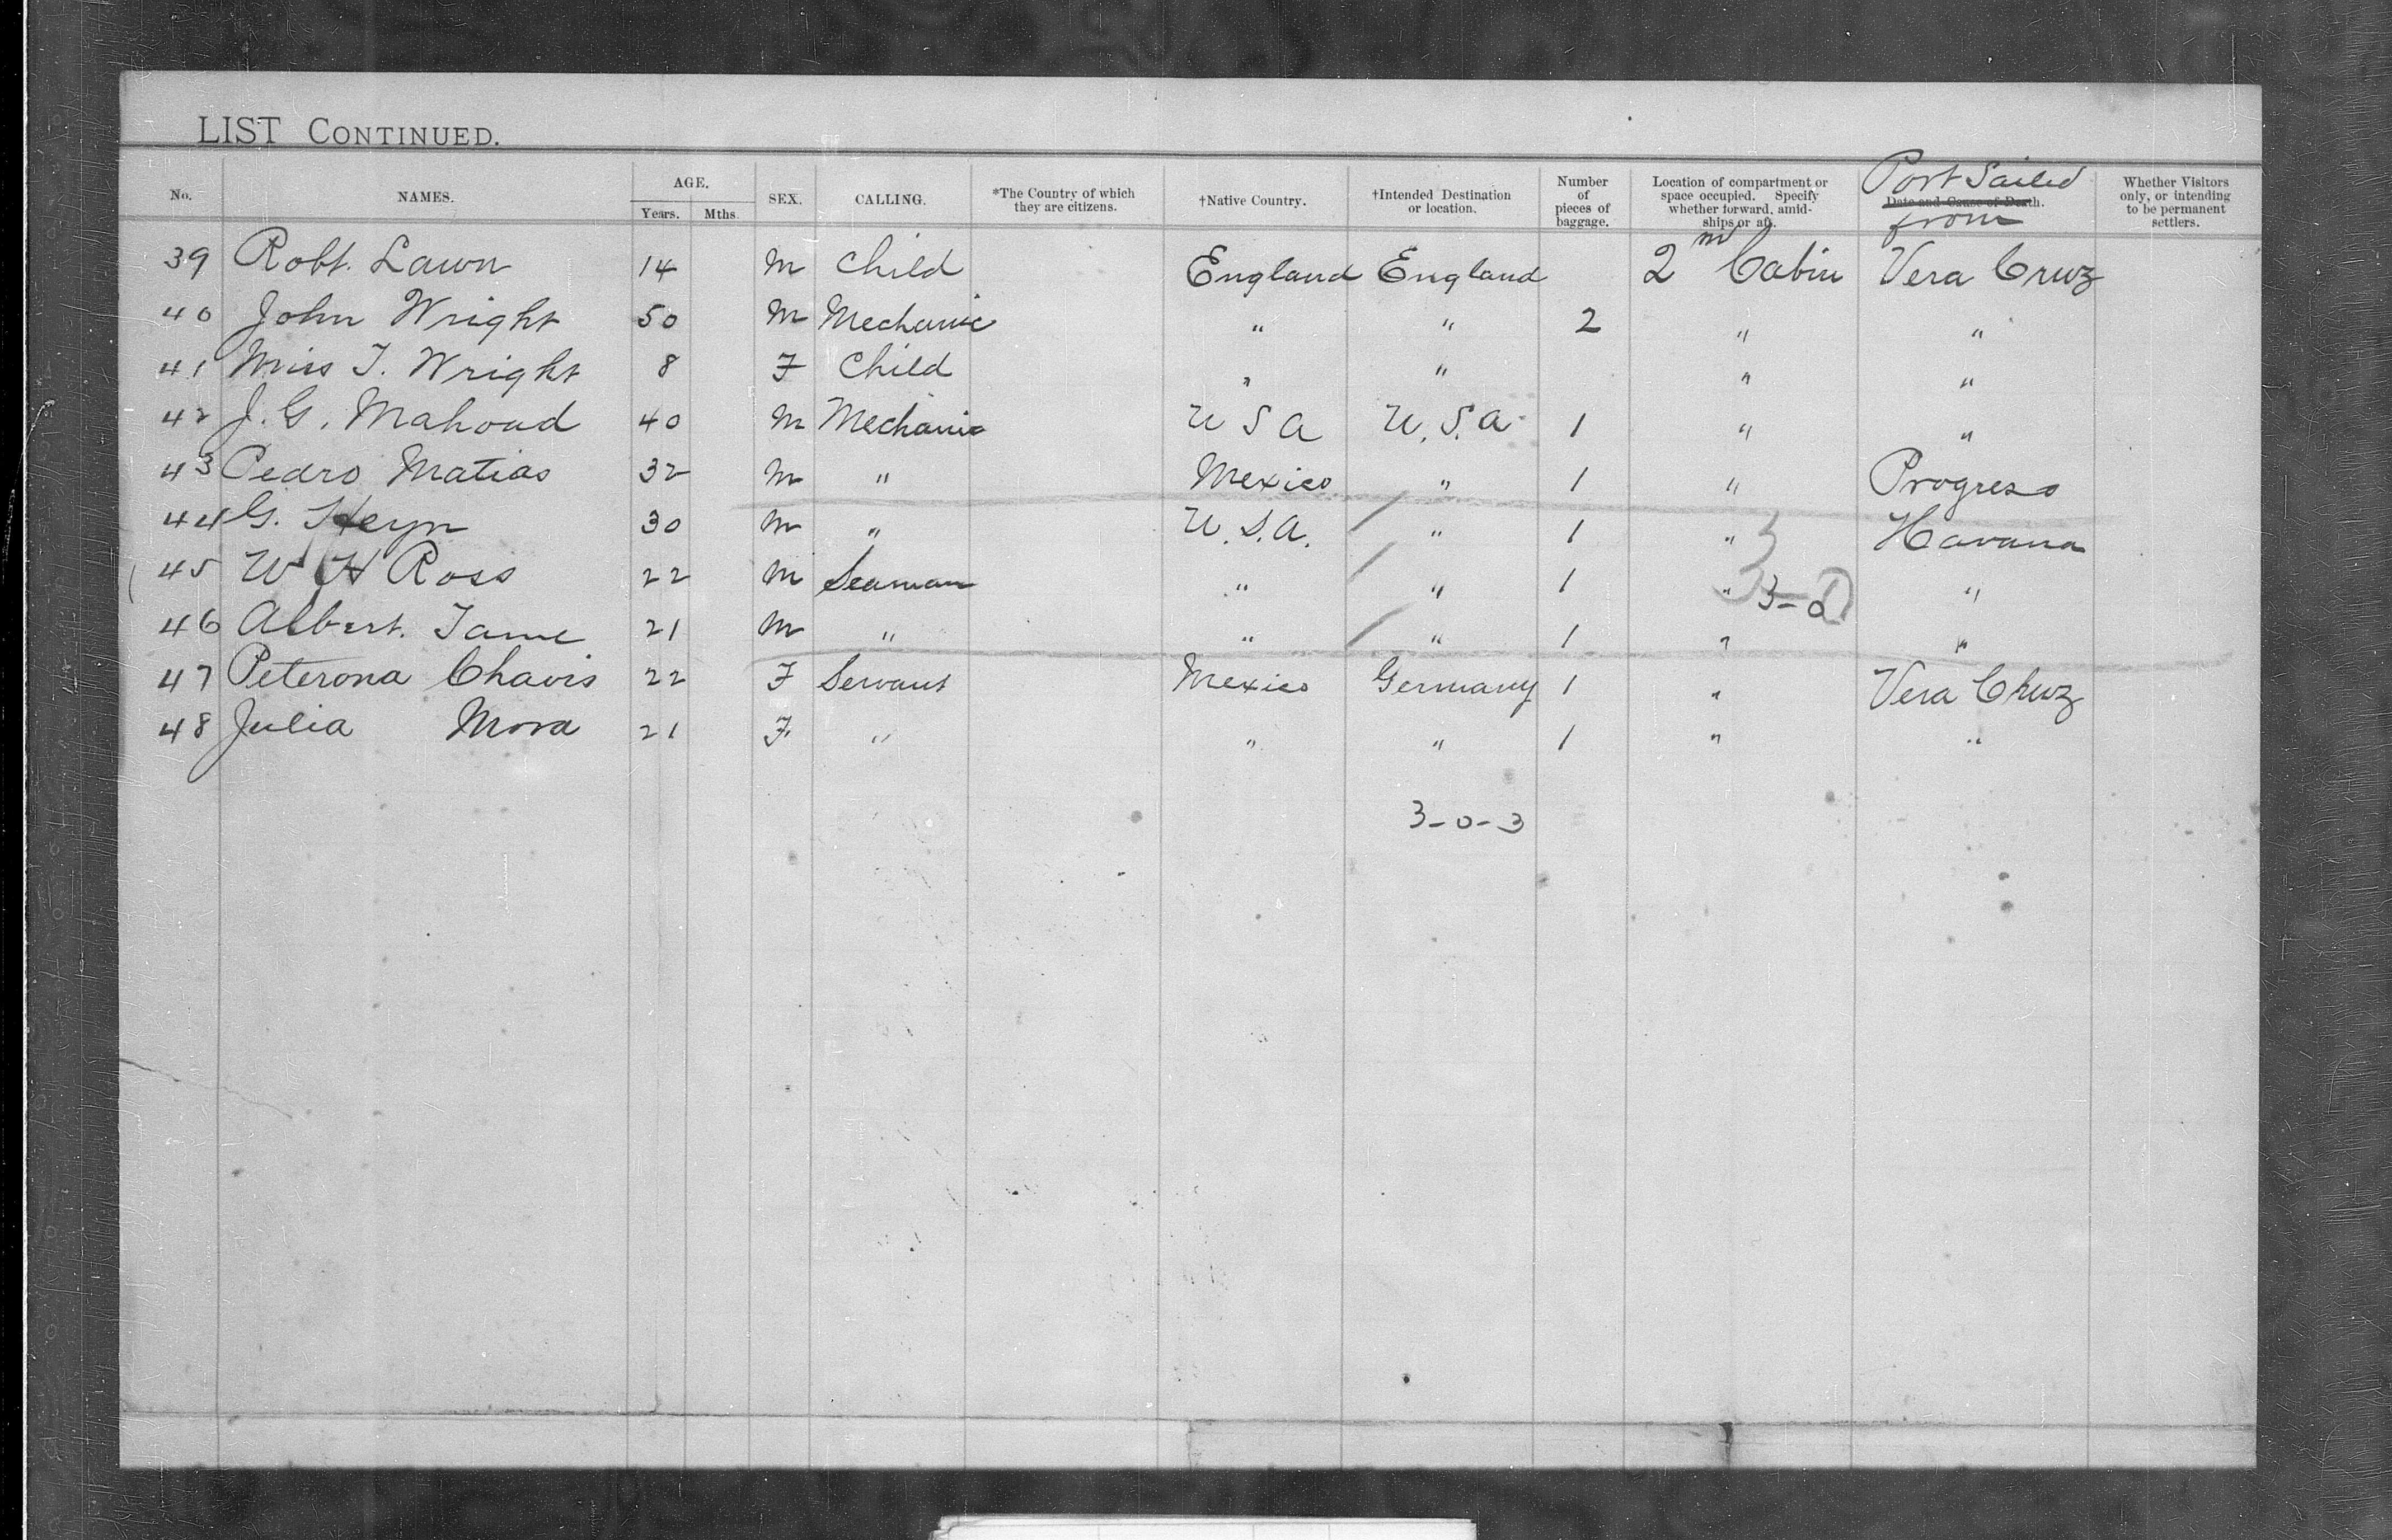 LIST CONTINUED.
No. NAMES. AGE. Years. Mths. SEX. CALLING. *The Country of which they are citizens. †Native Country. †Intended Destination or location. Number of pieces of baggage. Location of compartment or space occupied. Specify whether forward, amidships or aft. Date and Cause of Death. Port Sailed from Whether Visitors only, or intending to be permanent settlers.
39 Robt. Lawn 14 M Child England England 2nd Cabin Vera Cruz
40 John Wright 50 M Mechanic " " 2 " "
41 Miss T. Wright 8 F Child " " " "
42 J. G. Mahoud 40 M Mechanic U S A U. S. A. 1 " "
43 Pedro Matias 32 M " Mexico " 1 " Progreso
44 G. Heyn 30 M " U. S. A. " 1 " Havana
45 W H Ross 22 M Seaman " " 1 " 3-0 "
46 Albert. Tame 21 M " " " 1 " "
47 Peterona Chavis 22 F Servant Mexico Germany 1 " Vera Chuz
48 Julia Mora 21 F " " " 1 " "
3-0-3